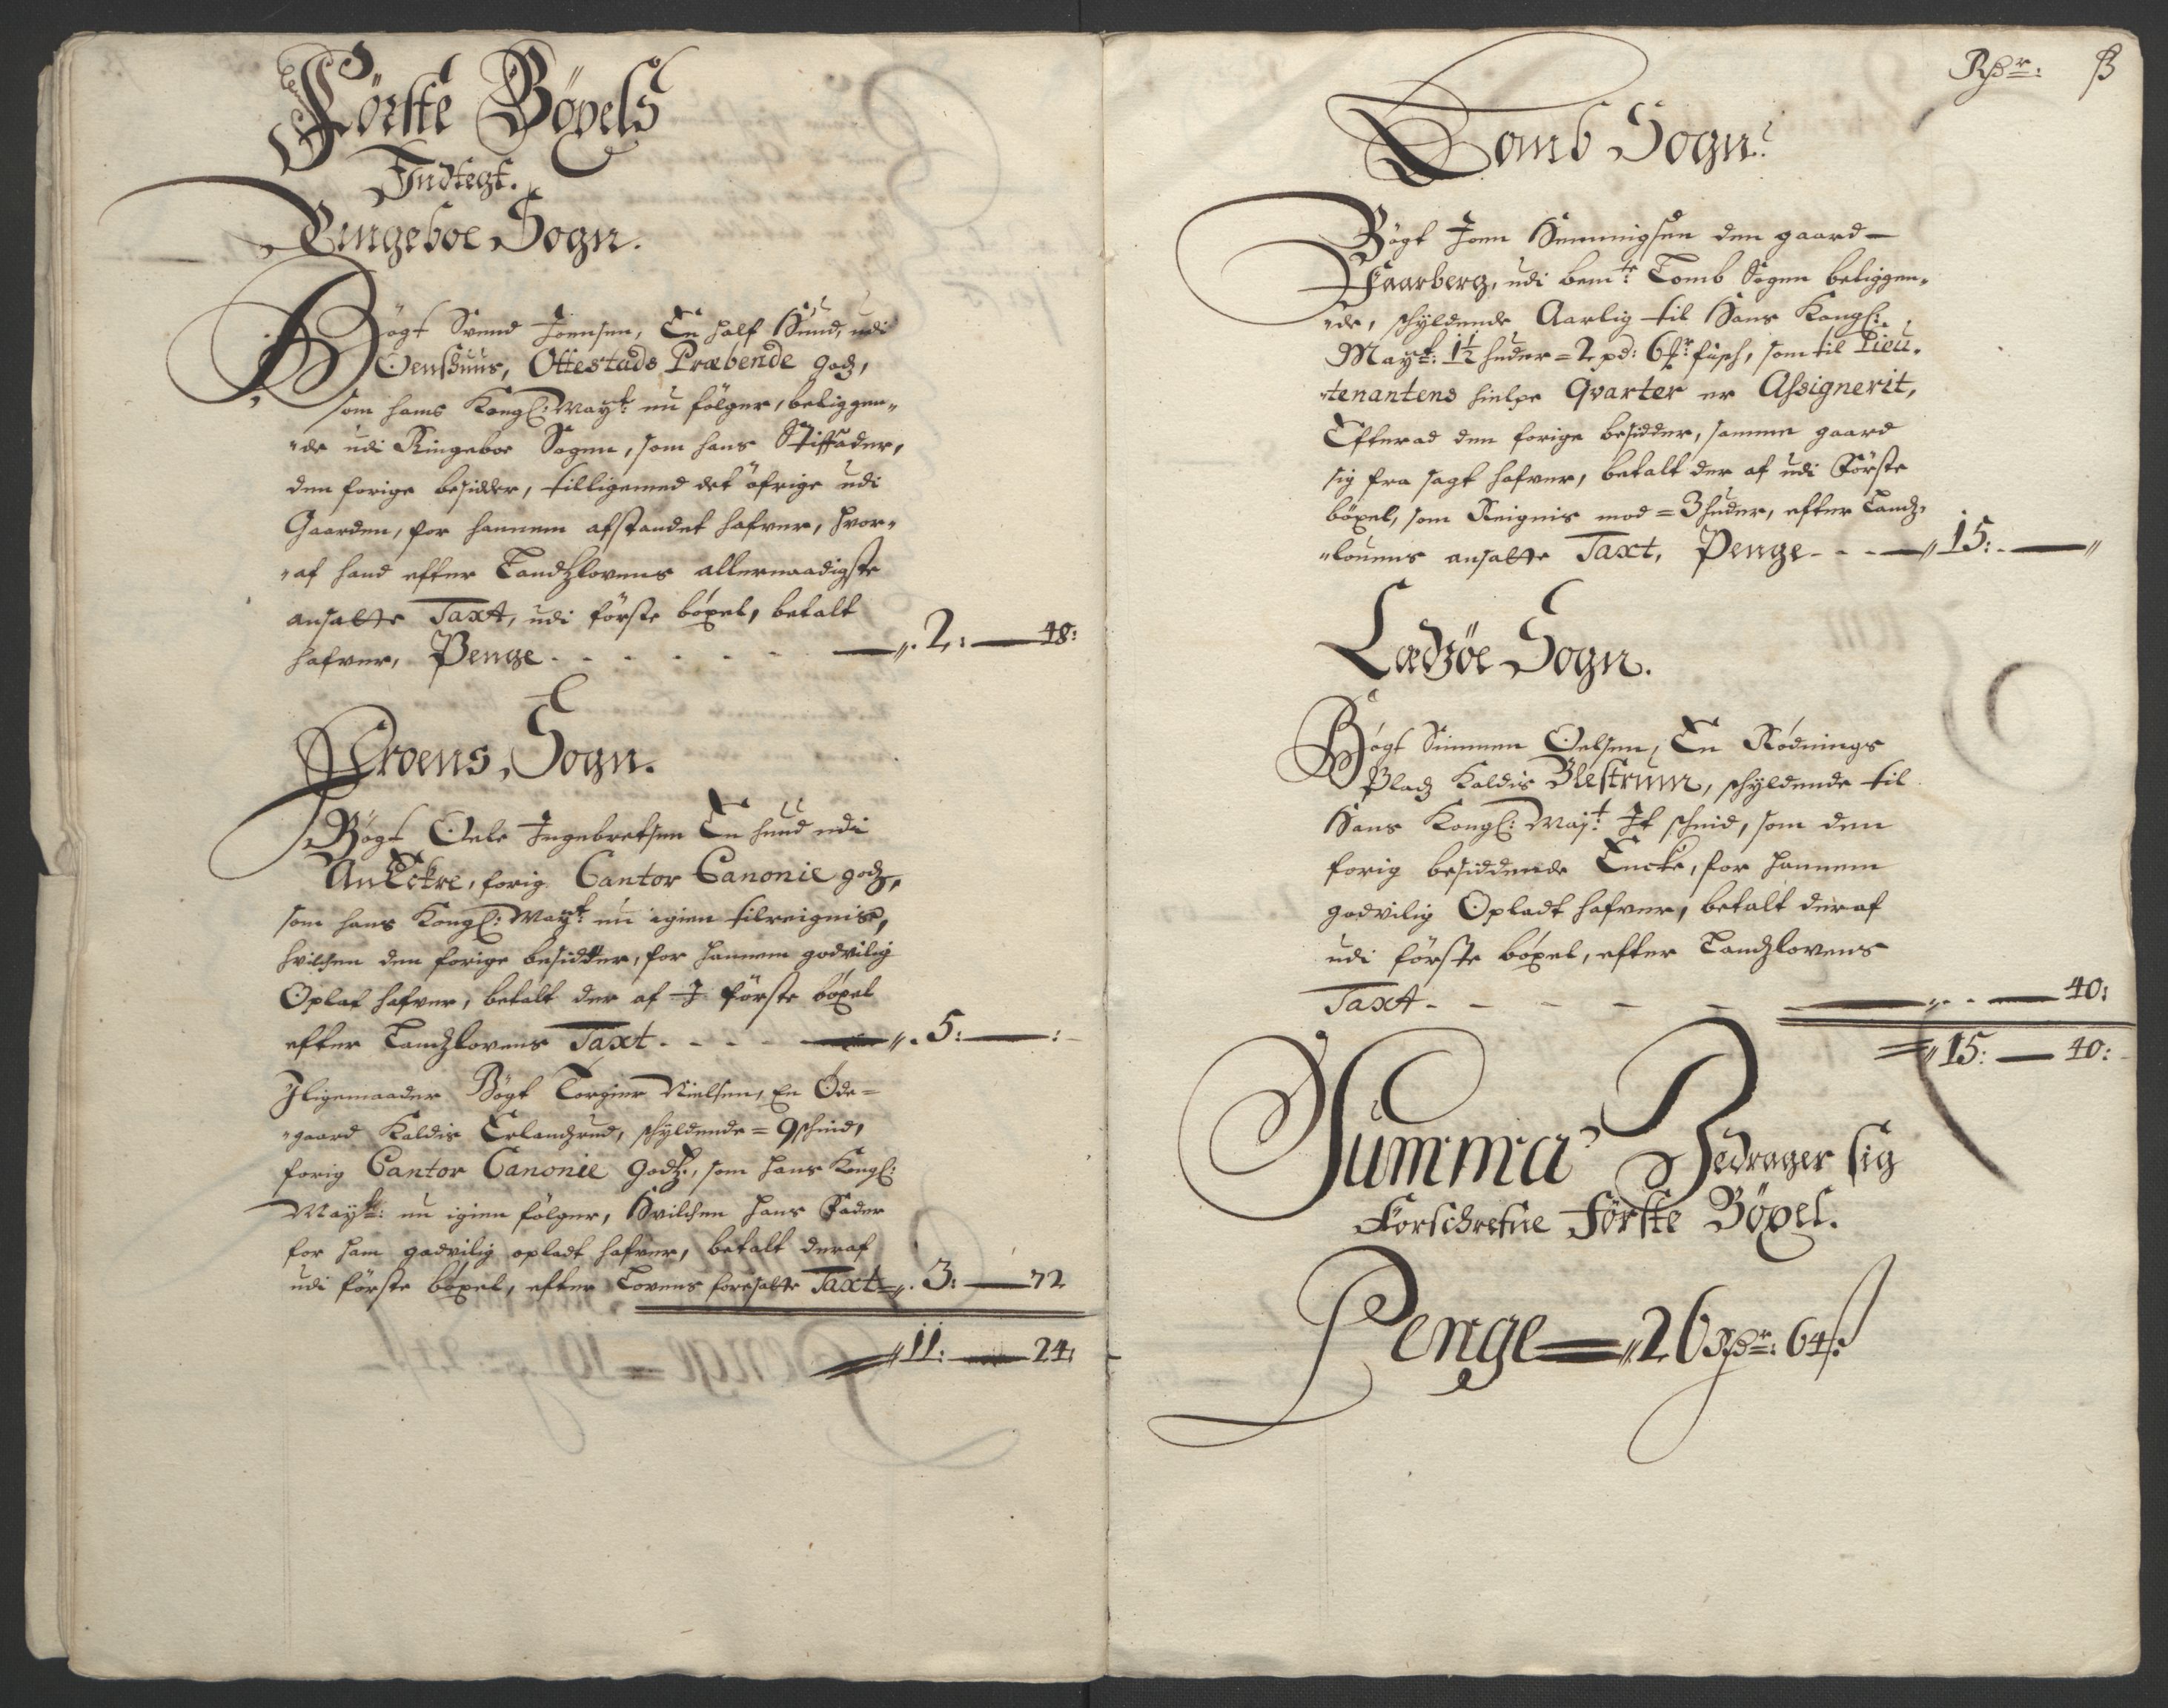 Förste Böxels
Indtegt.
Ringeboe Sogn.
Bögt Svend Joensen, En half Hund, udi
Oenshuus, Ottestads Præbende godz,
som hans Kongl: Mayt: nu fölger, beliggen„
„de udi Ringeboe Sogen, som hans Stiffader,
den forige besidder, tilligemed det öfrige udi
Gaarden, for hannem afstandet hafver, hvor„
„af hand efter Landzlovens allernaadigste
ansatte Taxt, udi förste böxel, betalt
hafver, Penge - - - - - - „ 2: — 48:
Froens Sogn.
Bögt Oele Ingebretsen En hund udi
forig Cantor Canonie godz,
som hans Kongl: Mayt: nu igien tilreignis,
hvilchen den forige besidder, for hannem godvilig
Oplat hafver, betalt der af I förste böxel
efter Landzlovens Taxt - - - - „ 5: — :
Iligemaader Bögt Torgier Nielsen, En Öde=
„gaard Kaldis Erlandzrud, schyldende = 9 schind,
forig Cantor Canonie Godtz, som hans Kongl:
Mayt: nu igien fölger, Hvilchen hans Fader
for ham godvilig opladt hafver, betalt deraf
udi förste böxel, efter Lovens foresatte Taxt = „ 3: — 72
„ 11: — 24:
Rhr: ß
Tomb Sogn:
Bögt Joen Hemmingsen den gaard
Faarberg, udi bemte: Tomb Sogen beliggen„
„de, schyldende Aarlig til Hans Kongl:
Mayt: 1½ huder = 2 pd: 6 fisch, som til Lieu„
„tenantens hielpe Qvarter er Assignerit,
Efterad den forige besidder, samme gaard
sig fra sagt hafver, betalt der af udi Förste
böxel, som Reignis mod = 3 huder, efter Landz„
„lovens ansatte Taxt, Penge - - - „ 15: — „
Ladzöe Sogn.
Bögt Simmen Oelsen, En Rødnings
Pladz Kaldis Blestrum, schyldende til
Hans Kongl: Majt: It schind, som den
forig besiddende Encke, for hannem
godvilig Opladt hafver, betalt deraf
udi förste böxel, efter Landzlovens
Taxt - - - - - „ - — 40:
„ 15: — 40:
Summa Bedrager sig
Forschrefne Förste Böxel.
Penge = „ 26 Rhr: 64 ß